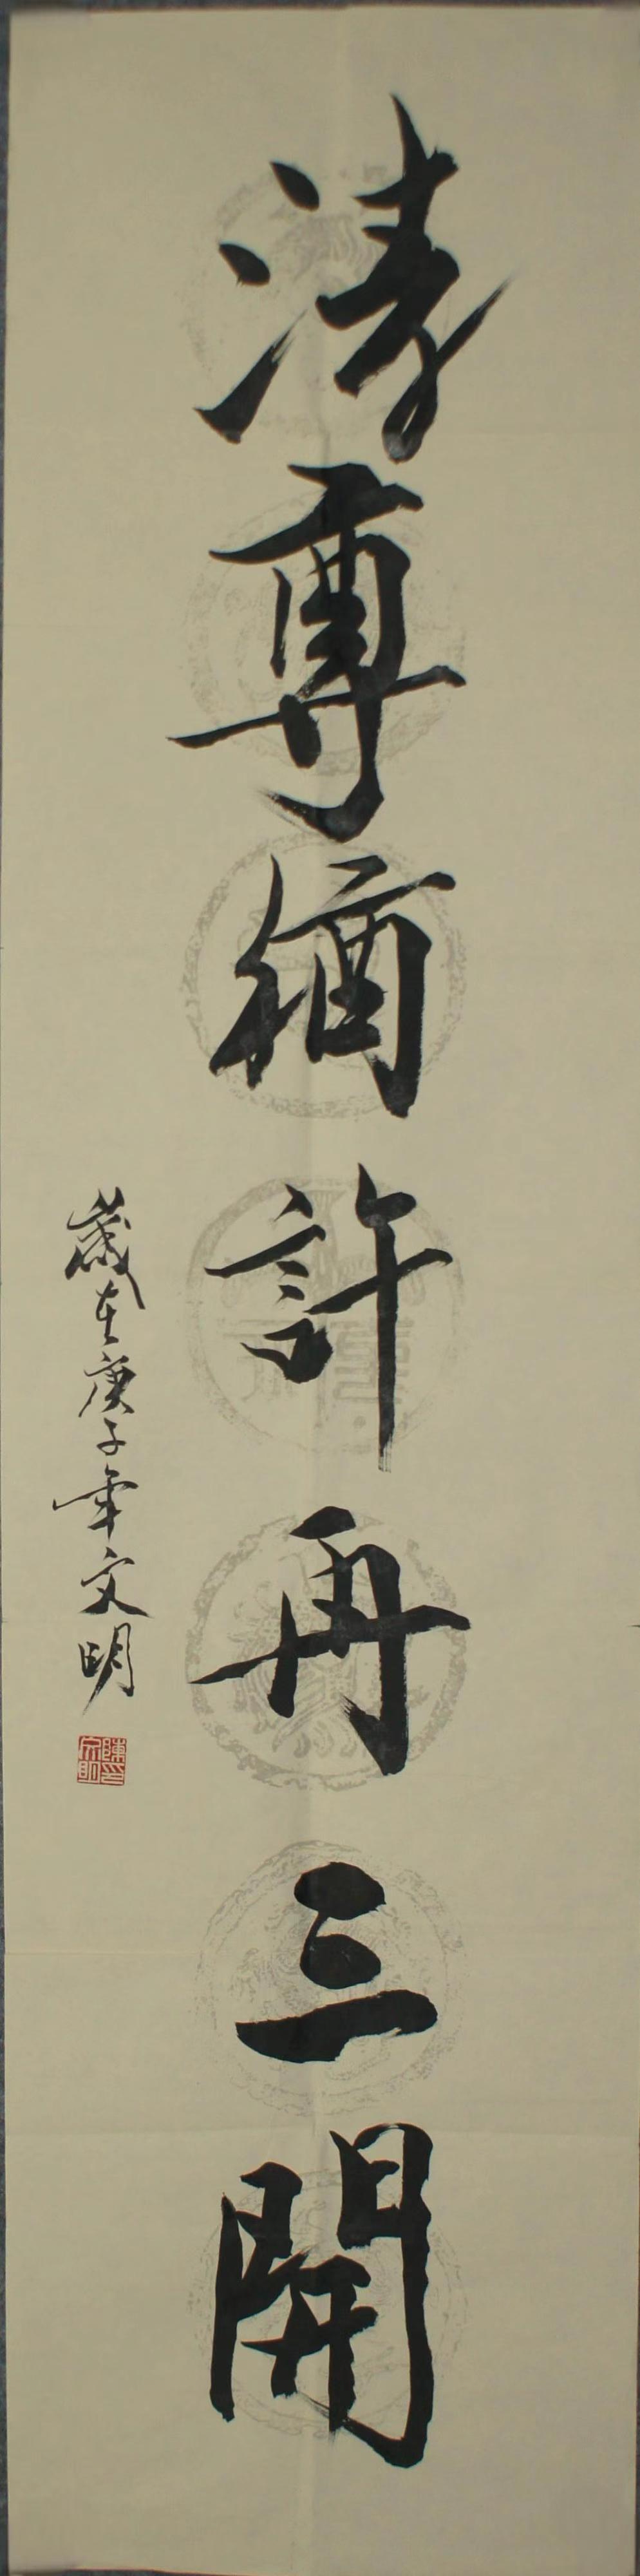 清尊猶許再三開
歲在庚子年文明